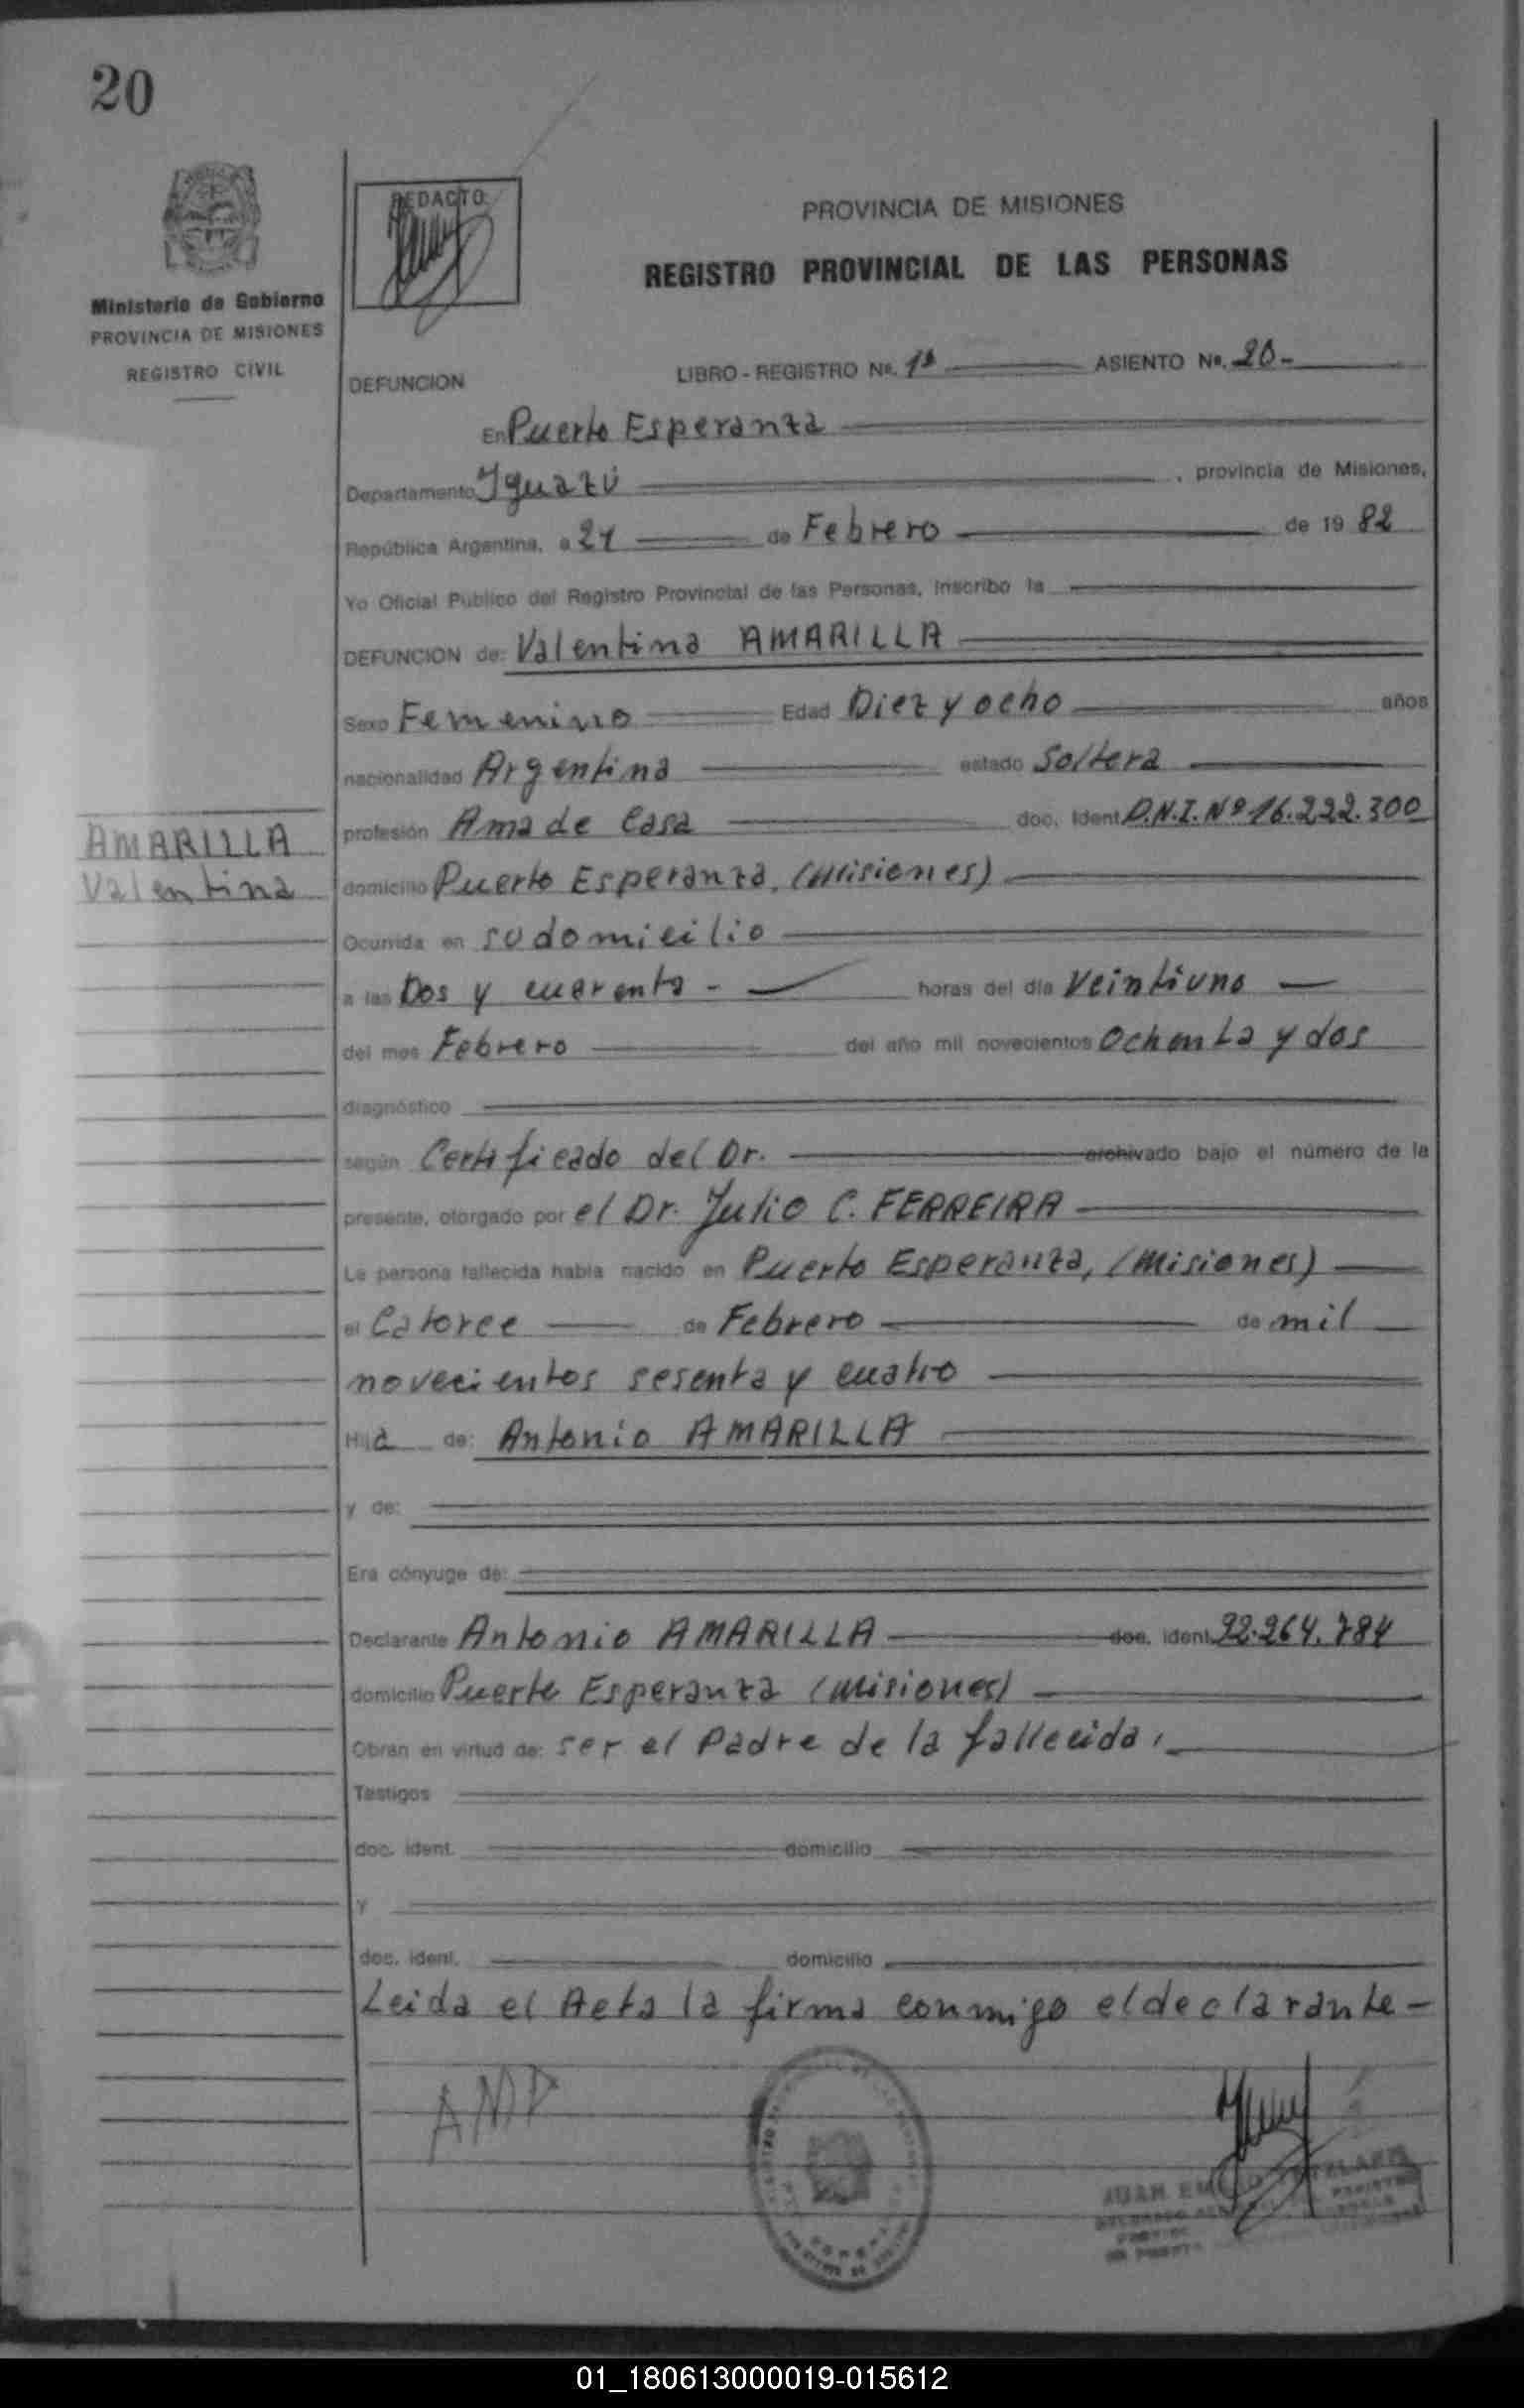 20
REDACTO:
PROVINCIA DE MISIONES
REGISTRO PROVINCIAL DE LAS PERSONAS
Ministerio de Gobierno
PROVINCIA DE MISIONES
REGISTRO CIVIL
DEFUNCION LIBRO - REGISTRO No. 1º ASIENTO No. 20-
En Puerto Esperanza
Departamento Iguazú, provincia de Misiones,
República Argentina, a 21 de Febrero de 19 82
Yo Oficial Público del Registro Provincial de las Personas, inscribo la
DEFUNCION de: Valentina AMARILLA
Sexo Femenino Edad Diez y ocho años
nacionalidad Argentina estado Soltera
AMARILLA
Valentina
profesión Ama de Casa doc. Ident. D.N.I. Nº 16.222.300
domicilio Puerto Esperanza, (Misiones)
Ocurrida en su domicilio
a las Dos y cuarenta - horas del día Veintiuno
del mes Febrero del año mil novecientos Ochenta y dos
diagnóstico
según Certificado del Dr. archivado bajo el número de la
presente, otorgado por el Dr. Julio C. FERREIRA
La persona fallecida había nacido en Puerto Esperanza, (Misiones)
el Catorce de Febrero de mil
novecientos sesenta y cuatro
Hija de: Antonio AMARILLA
y de:
Era cónyuge de:
Declarante Antonio AMARILLA doc. ident. 22.264.784
domicilio Puerto Esperanza (Misiones)
Obran en virtud de: ser el Padre de la fallecida,
Testigos
doc. ident. domicilio
y
doc. ident. domicilio
Leida el Acta la firma conmigo el declarante -
JUAN
01_180613000019-015612